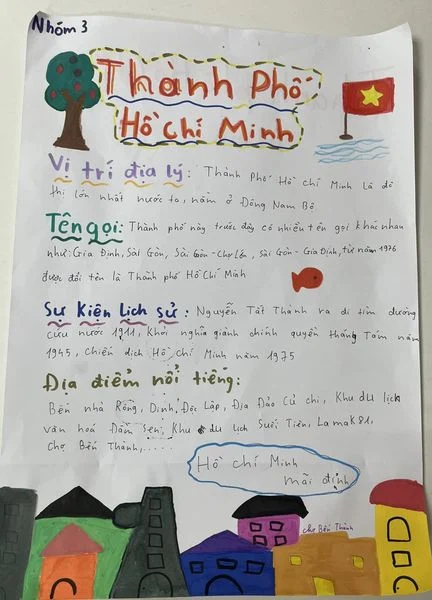 Nhóm 3
Thành Phố
Hồ Chí Minh
Vị trí địa lý: Thành Phố Hồ Chí Minh là đô
thị lớn nhất nước ta, nằm ở Đông Nam Bộ
Tên gọi: Thành phố này trước đây có nhiều tên gọi khác nhau
như: Gia Định, Sài Gòn, Sài Gòn - Chợ Lớn, Sài Gòn - Gia Định, từ năm 1976
được đổi tên là Thành phố Hồ Chí Minh
Sự Kiện Lịch sử: Nguyễn Tất Thành ra đi tìm đường
cứu nước 1911, Khởi nghĩa giành chính quyền tháng Tám năm
1945, Chiến dịch Hồ Chí Minh năm 1975
Địa điểm nổi tiếng:
Bến nhà Rồng, Dinh Độc Lập, Địa Đảo Củ chi, Khu du lịch
văn hoá Đầm Sen, Khu du lịch Suối Tiên, Lamak 81,
Chợ Bến Thành,.....
Hồ Chí Minh
mãi đỉnh
chợ Bến Thành